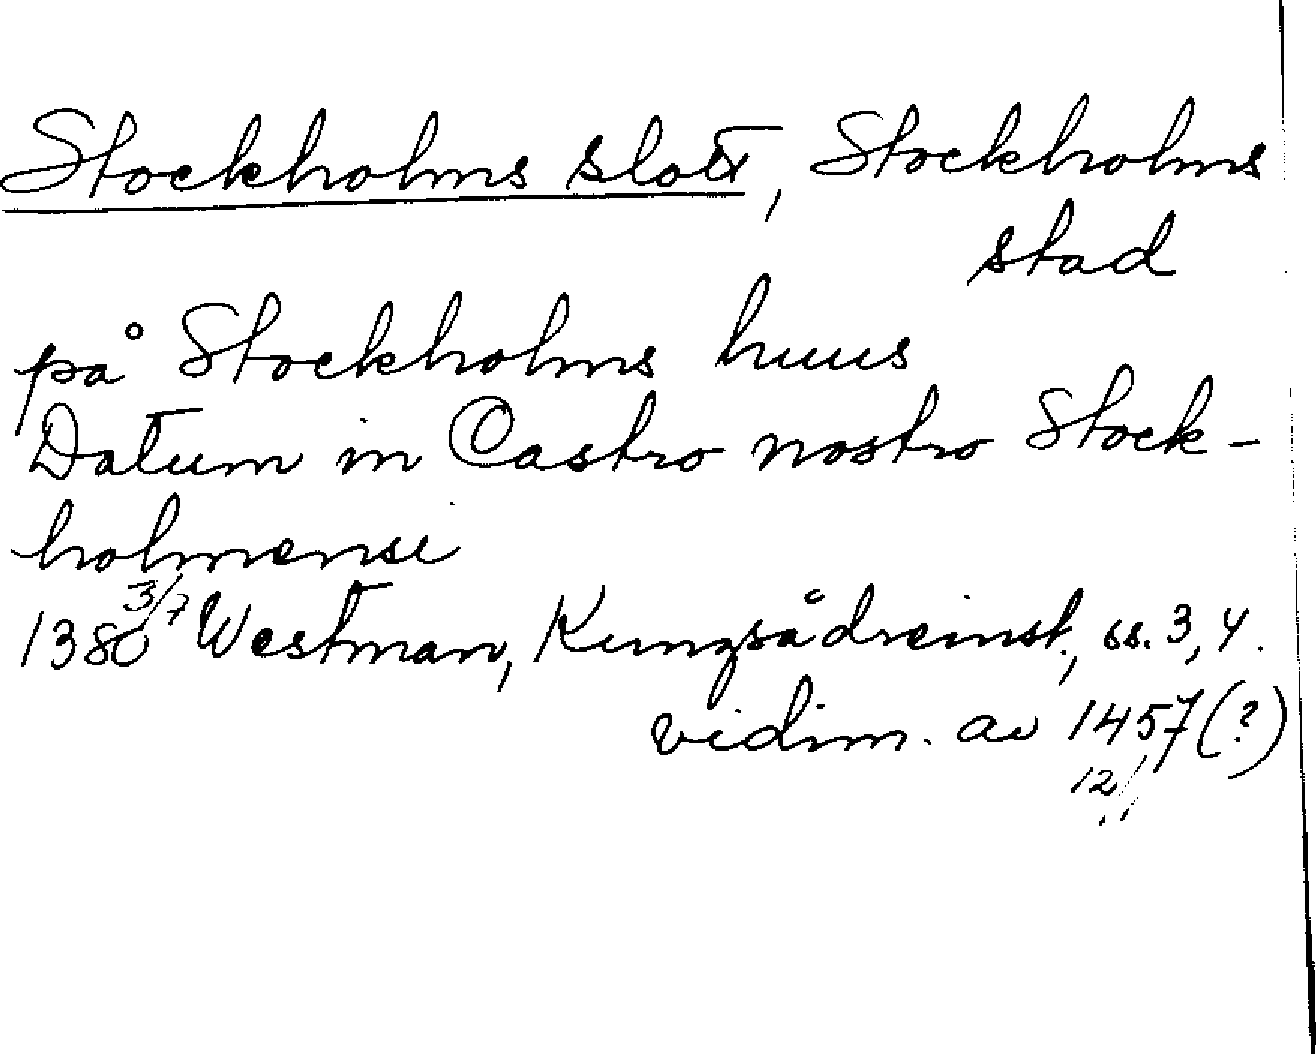 Stockholms slott, Stockholms
stad
på Stockholms huus
Datum in Castro nostro Stock-
holmensi
1380 3/7 Westman, Kungsådreinst., ss. 3, 4.
vidim. av 1457 (?)
12/